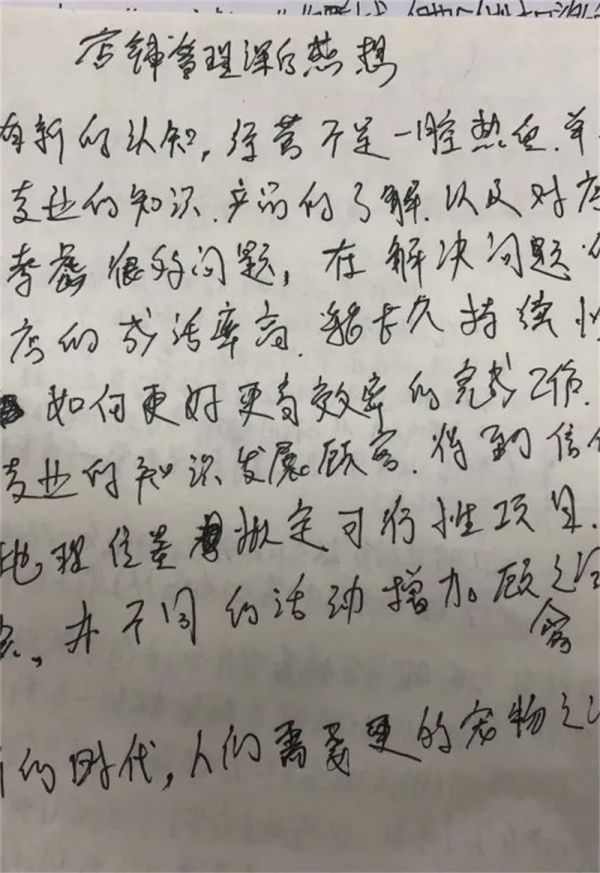 店铺管理课的感想
有新的认知,经营不是一腔热血.单
专业的知识.产品的了解.以及对店
很多问题,在解决问题
店的成活率高.能长久持续性
如何更好更高效率的完成工作.
专业的知识发展顾客.得到信任
地理位置拟定可行性项目.
办不同的活动增加顾客之
的时代,人们需要更的宠物之